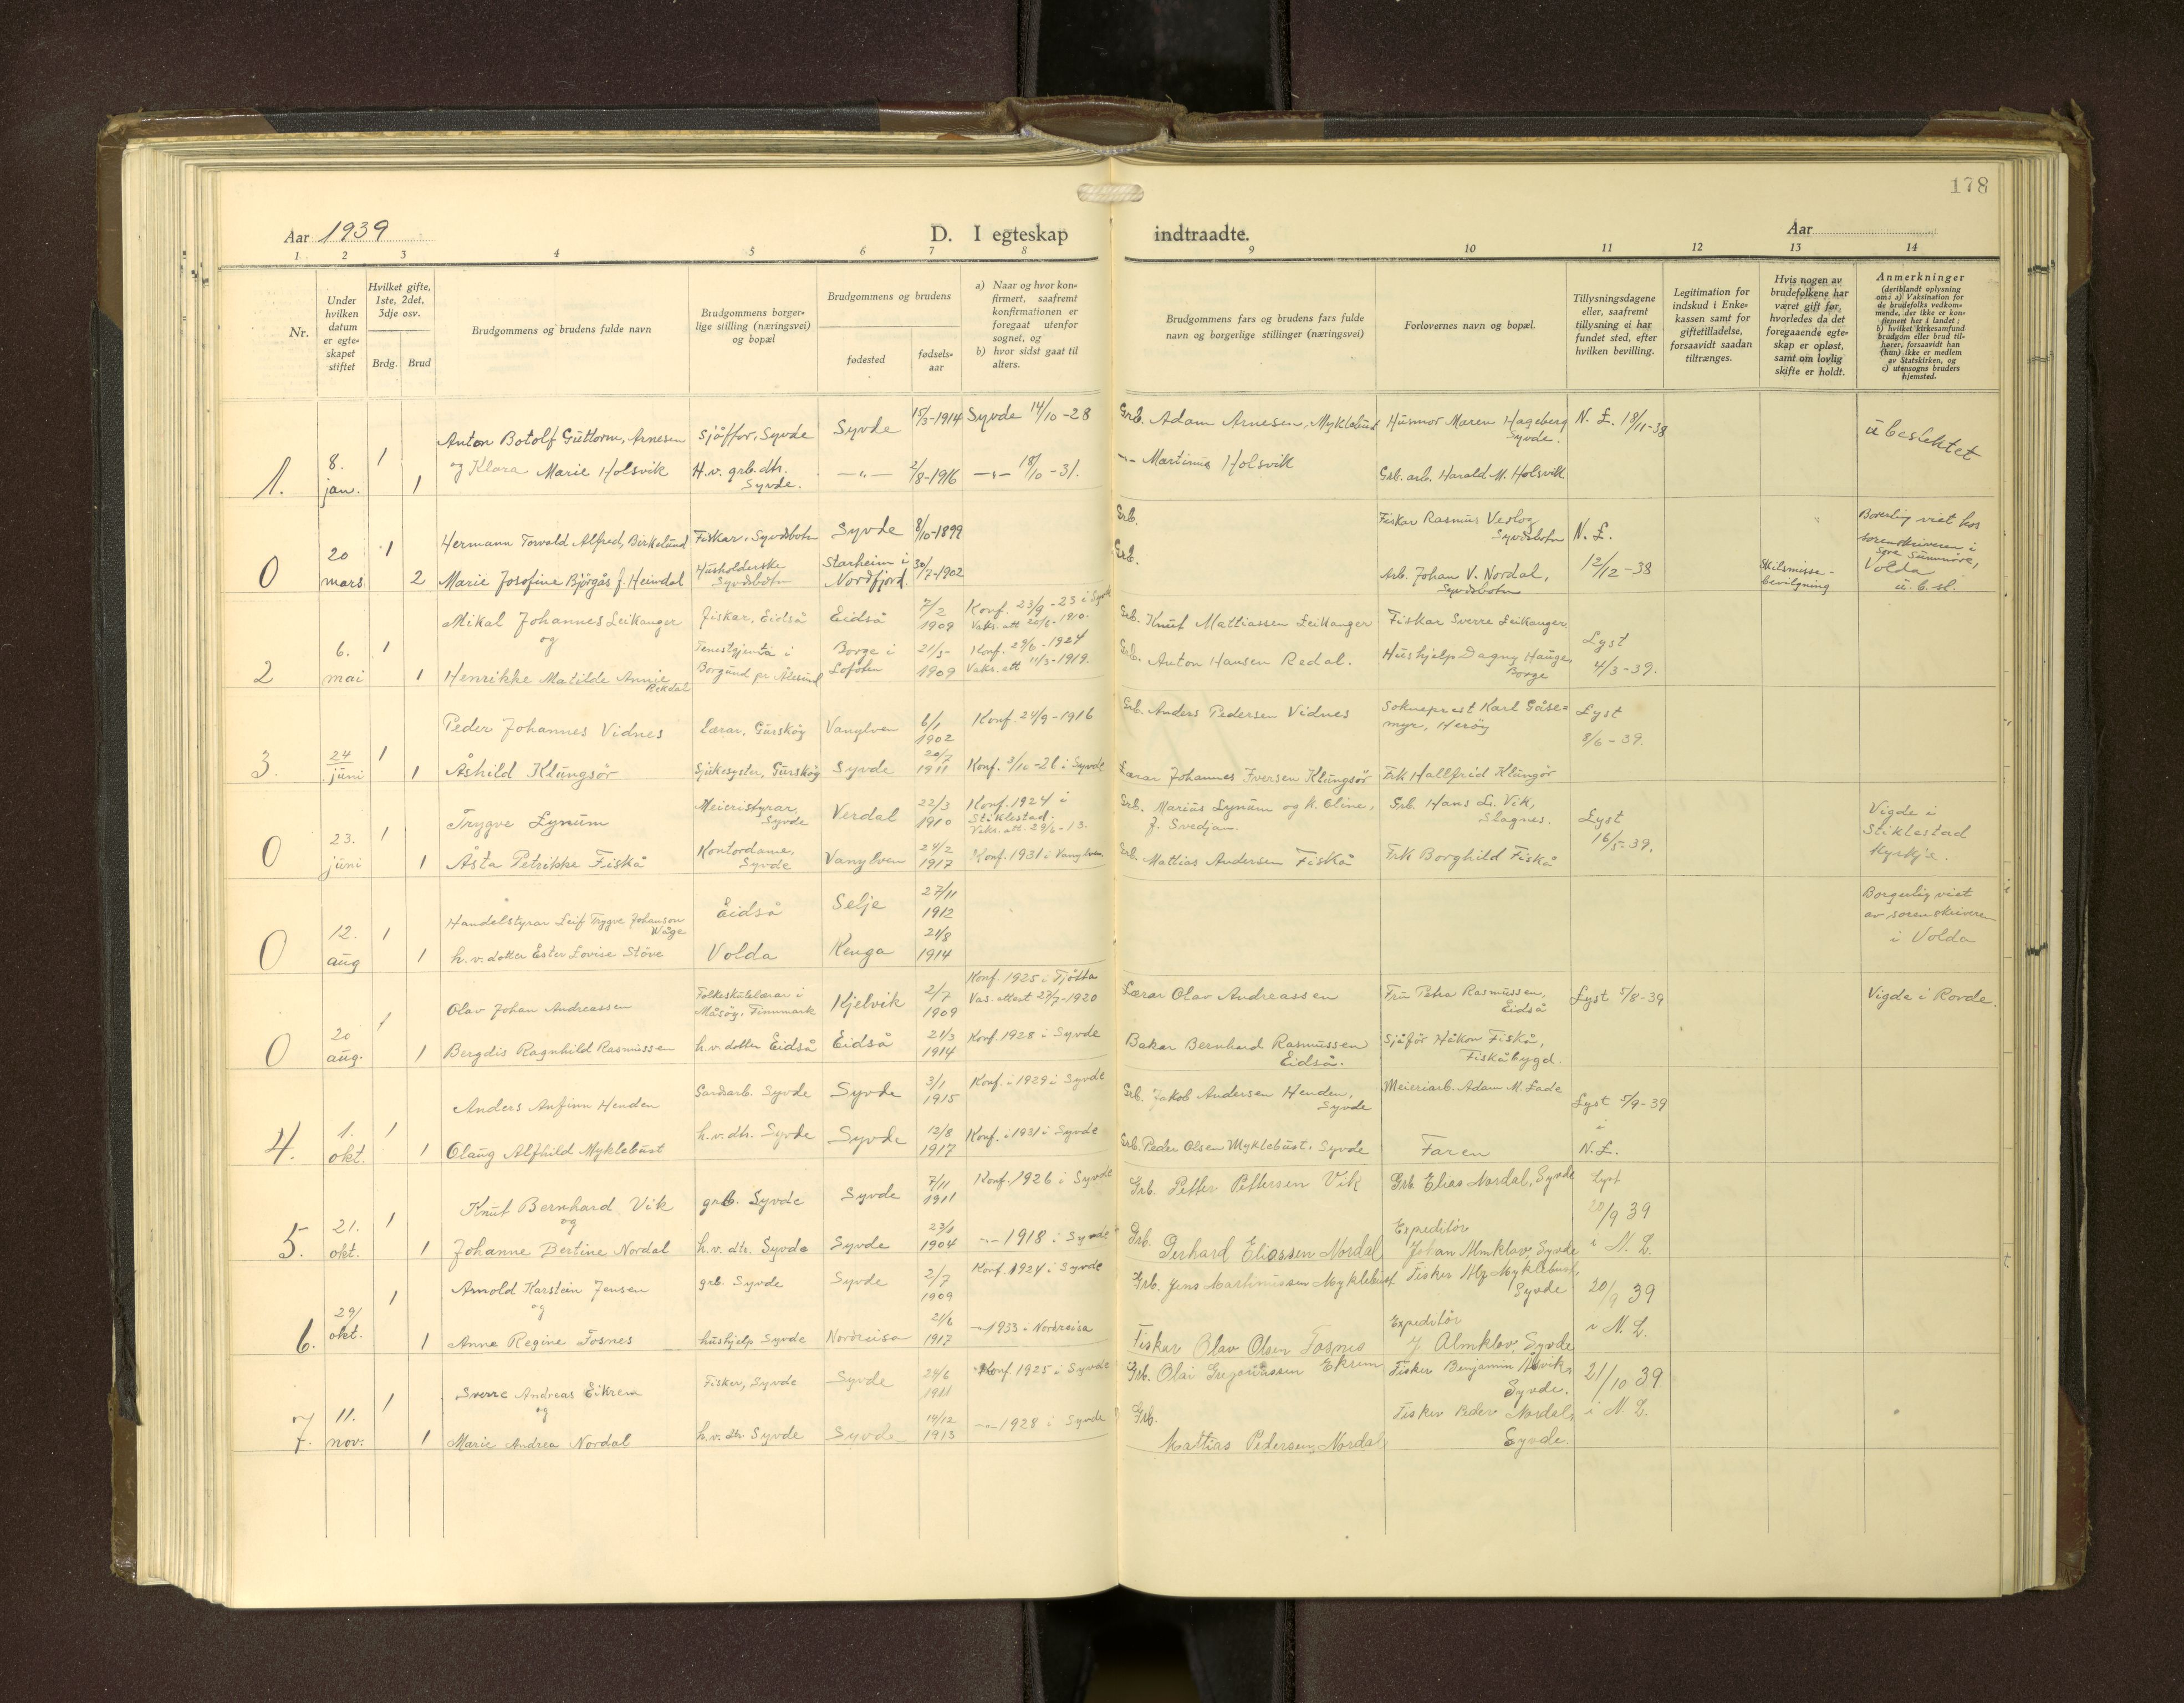 178
Aar 1939
D. I egteskap indtraadte.
Aar
1 2 3 4 5 6 7 8 9 10 11 12 13 14
Nr.
Under hvilken datum er egte-skapet stiftet
Hvilket gifte, 1ste, 2det, 3dje osv.
Brdg. Brud
Brudgommens og brudens fulde navn
Brudgommens borger-lige stilling (næringsvei) og bopæl
Brudgommens og brudens
fødested
fødsels-aar
a) Naar og hvor kon-firmert, saafremt konfirmationen er foregaat utenfor sognet, og
b) hvor sidst gaat til alters.
Brudgommens fars og brudens fars fulde navn og borgerlige stillinger (næringsvei)
Forlovernes navn og bopæl.
Tillysningsdagene eller, saafremt tillysning ei har fundet sted, efter hvilken bevilling.
Legitimation for indskud i Enke-kassen samt for giftetilladelse, forsaavidt saadan tiltrænges.
Hvis nogen av brudefolkene har været gift før, hvorledes da det foregaaende egte-skap er opløst, samt om lovlig skifte er holdt.
Anmerkninger
(deriblandt oplysning om: a) Vaksination for de brudefolks vedkom-mende, der ikke er kon-firmert her i landet; b) hvilket kirkesamfund brudgom eller brud til-hører, forsaavidt han (hun) ikke er medlem av Statskirken, og c) utensogns bruders hjemsted.
1. 8. jan. 1 Anton Botolf Guttorm, Arnesen Sjåffør, Syvde Syvde 15/3-1914 Syvde 14/10-28 Grb. Adam Arnesen, Myklebust Husmor Maren Hageberg Syvde. N. L. 18/11-38 ubeslektet
1 og Klara Marie Holsvik H.v. grb. dtr. Syvde. —„— 2/8-1916 —„— 18/10-31. —„— Martinus Holsvik Grb. arb. Harald M. Holsvik
0 20 mars 1 Hermann Torvald Alfred, Birkelund Fiskar, Syvdsbotn Syvde 8/10-1899 Grb. Fiskar Rasmus Veslog Syvdsbotn N. L. 12/12-38 Borgerlig viet hos sorenskriveren i Søre Sunnmøre, Volda u.b.sl.
2 Marie Josofine Bjørgås f. Heimdal Husholderske Syvdsbotn Starheim i Nordfjord 30/7-1902 Grb. Arb. Johan V. Nordal, Syvdsbotn Skilsmisse-bevilgning
2 6. mai 1 Mikal Johannes Leikanger Fiskar, Eidså Eidså 7/2 1909 Konf. 23/9-23 i Syvde Vaks. att 20/6-1910. Grb. Knut Mattiassen Leikanger Fiskar Sverre Leikanger Lyst 4/3-39.
og
1 Henrikke Matilde Annie Rekdal Tenestjenta i Borgund pr Ålesund Borge i Lofoten 21/5-1909 Konf. 29/6-1924 Vaks. att 11/3-1919. Grb. Anton Hansen Redal. Hushjelp Dagny Hauge, Borge
3. 24 juni 1 Peder Johannes Vidnes Lærar, Gurskøy Vanylven 6/1 1902 Konf. 24/9-1916 Grb. Anders Pedersen Vidnes Sokneprest Karl Gåse=myr, Herøy Lyst 8/6-39.
1 Åshild Klungsør Sjukesyster, Gurskøy Syvde 20/7 1911 Konf. 3/10-26 i Syvde Lærar Johannes Iversen Klungsør Frk Hallfrid Klungør
0 23. juni 1 Trygve Lynum Meieristyrar, Syvde Verdal 22/3 1910 Konf. 1924 i Stiklestad. Vaks. att. 29/6-13. Grb. Marius Lynum og k. Oline, f. Svedjan. Grb. Hans L. Vik, Slagnes. Lyst 16/5-39. Vigde i Stiklestad Kyrkje.
1 Åsta Petrikke Fiskå Kontordame, Syvde Vanylven 24/2 1917 Konf. 1931 i Vanylven. Grb. Mattias Andersen Fiskå Frk Borghild Fiskå
0 12. aug 1 Handelstyrar Leif Trygve Johanson Våge Eidså Selje 27/11 1912 Borgerlig viet av sorenskriveren i Volda
1 h.v. dotter Ester Lovise Støve Volda Kenga 21/8 1914
0 20 aug. 1 Olav Johan Andreassen Folkeskulelærar i Måsøy, Finnmark Kjelvik 2/7 1909 Konf. 1925 i Tjøtta Vas. attest 27/7-1920 Lærar Olav Andreassen Fru Petra Rasmussen, Eidså Lyst 5/8-39 Vigde i Rovde.
1 Bergdis Ragnhild Rasmussen h.v. dotter Eidså Eidså 21/3 1914 Konf. 1928 i Syvde Bakar Bernhard Rasmussen Eidså. Sjåfør Håkon Fiskå, Fiskåbygd.
4. 1. okt. 1 Anders Anfinn Henden Gardsarb. Syvde Syvde 3/1 1915 Konf. i 1929 i Syvde Grb. Jakob Andersen Henden, Syvde Meieriarb. Adam M. Lade Lyst 5/9-39 i N.L.
1 Olaug Alfhild Myklebust h.v. dtr. Syvde Syvde 12/8 1917 Konf. i 1931 i Syvde Grb. Peder Olsen Myklebust, Syvde Faren
5. 21. okt. 1 Knut Bernhard Vik grb. Syvde Syvde 7/11 1911 Konf. 1926 i Syvde Grb. Petter Pettersen Vik Grb. Elias Nordal, Syvde Lyst 20/9 39 i N. L.
og
1 Johanne Bertine Nordal h.v. dtr. Syvde Syvde 23/1 1904 —„— 1918 i Syvde Grb. Gerhard Eliassen Nordal Expeditør Johan Almklov, Syvde
6. 29/ okt. 1 Arnold Karstein Jensen grb. Syvde Syvde 2/7 1909 Konf. 1924 i Syvde Grb. Jens Martinussen Myklebust Fisker Hg Myklebust, Syvde 20/9 39 i N. L.
og
1 Anne Regine Fosnes hushjelp Syvde Nordreisa 21/6 1917 —„— 1933 i Nordreisa Fisker Olav Olsen Fosnes Expeditør J Almklov, Syvde
7. 11. nov. 1 Sverre Andreas Eikrem Fisker, Syvde Syvde 24/6 1911 Konf 1925 i Syvde Grb. Olai Gregoriussen Ekrem Fisker Benjamin Åsvik, Syvde. 21/10 39 i N. L.
og
1 Marie Andrea Nordal h.v. dtr Syvde Syvde 14/12 1913 —„— 1928 i Syvde Grb. Mattias Pedersen, Nordal Fisker Peder Nordal, Syvde.